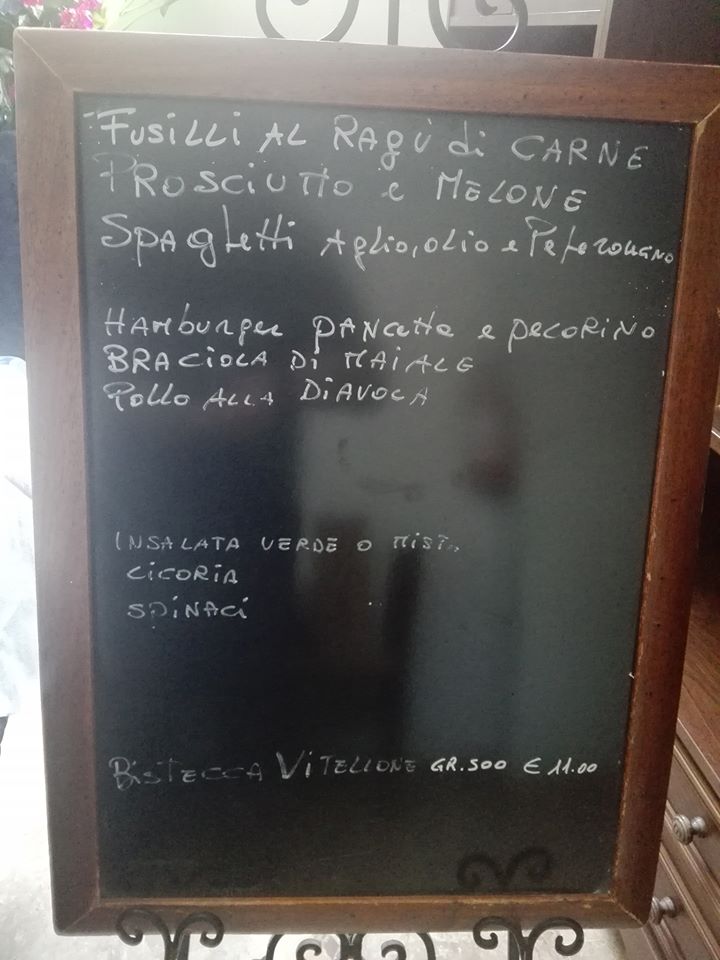 Fusilli al Ragù di CARNE
PROSCIUTTO e MELONE
Spaghetti Aglio, olio e Peperoncino
Hamburger pancetta e pecorino
BRACIOLA DI MAIALE
Pollo alla DIAVOLA
INSALATA VERDE O MISTA
CICORIA
SPINACI
BISTECCA VITELLONE GR.500 € 11.00